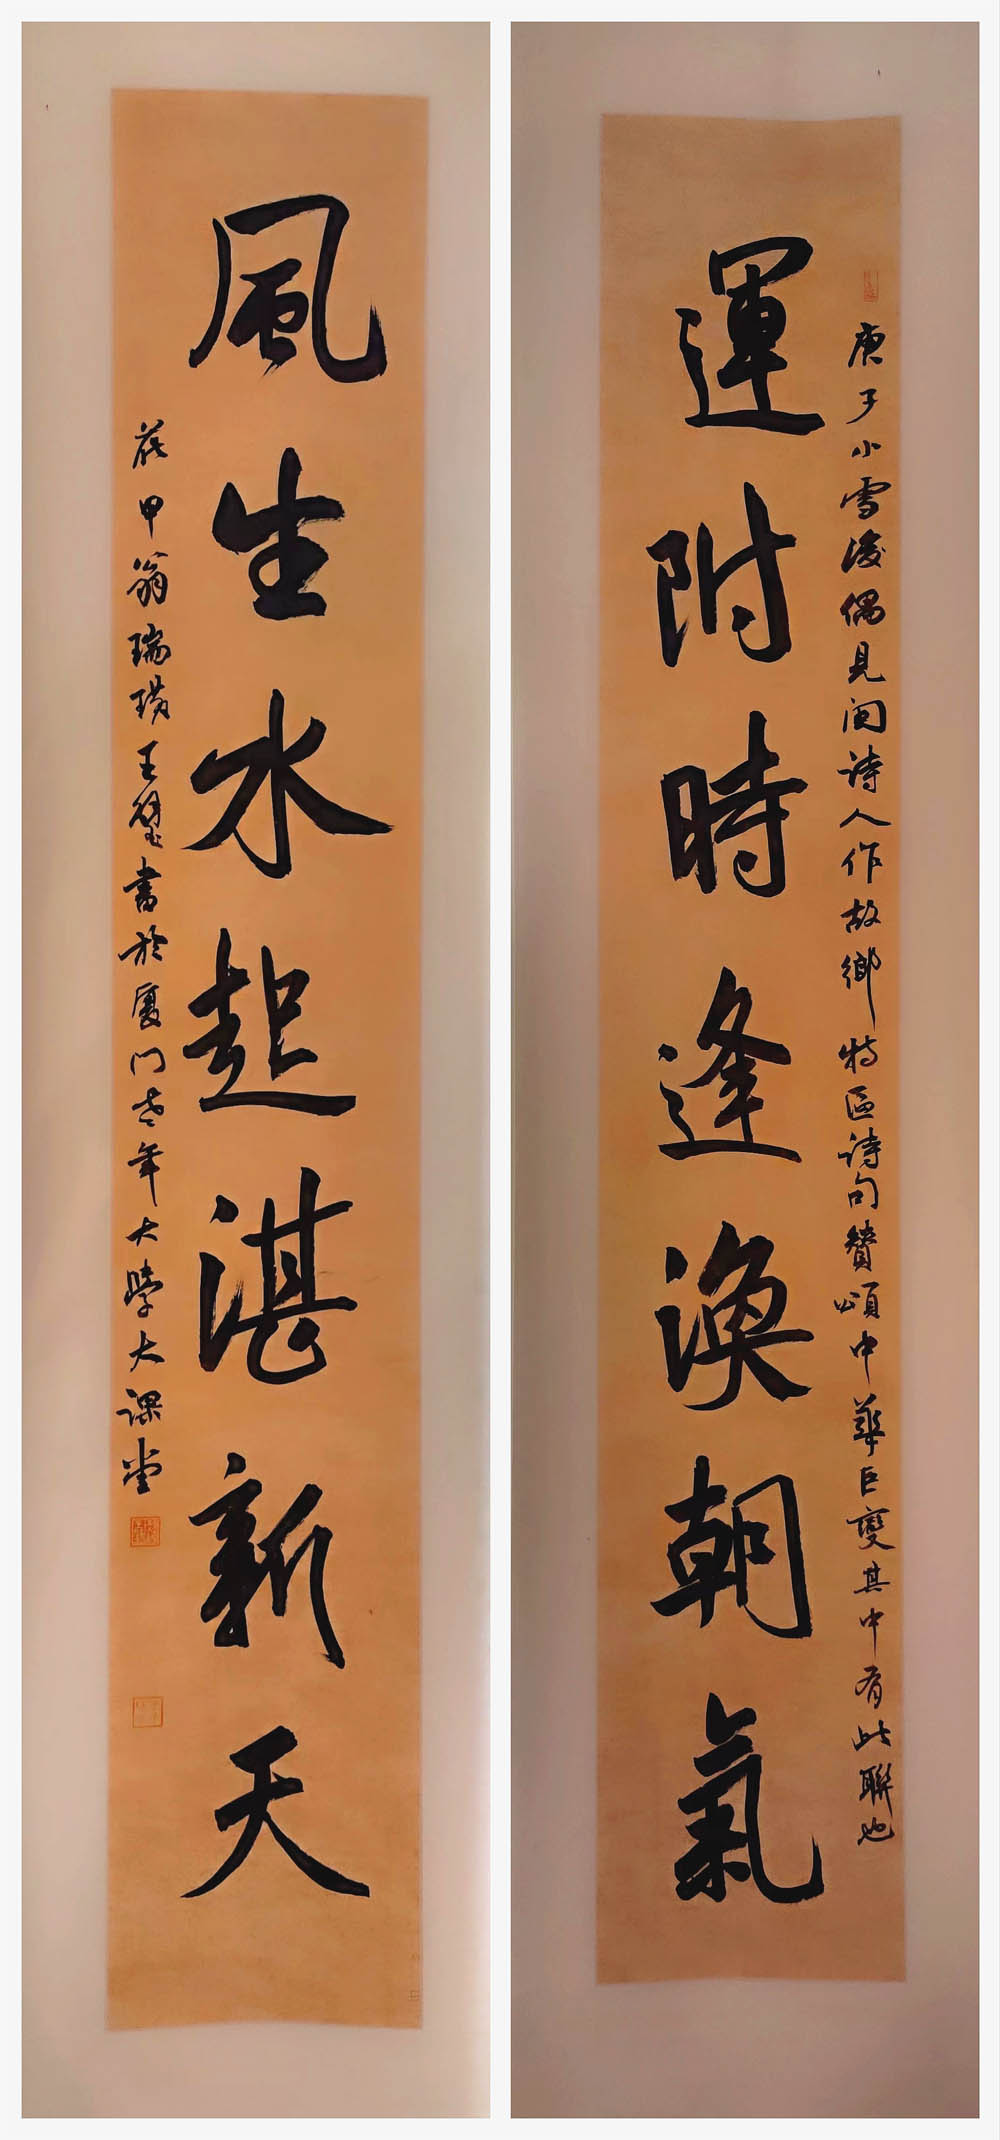 運附時逢渙朝氣
庚子小雪後偶見閩诗人作故鄉特區诗句贊頌中華巨變其中有此聯也
風生水起湛新天
甲翁瑞璜王璧書於厦门老年大學大课堂